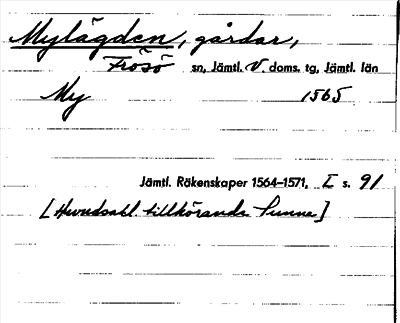 Mylägden, gårdar,
Frösö sn, Jämtl. V. doms. tg, Jämtl. län
My 1565
Jämtl. Räkenskaper 1564–1571, I s. 91
[Huvudsakl. tillhörande Sunne]